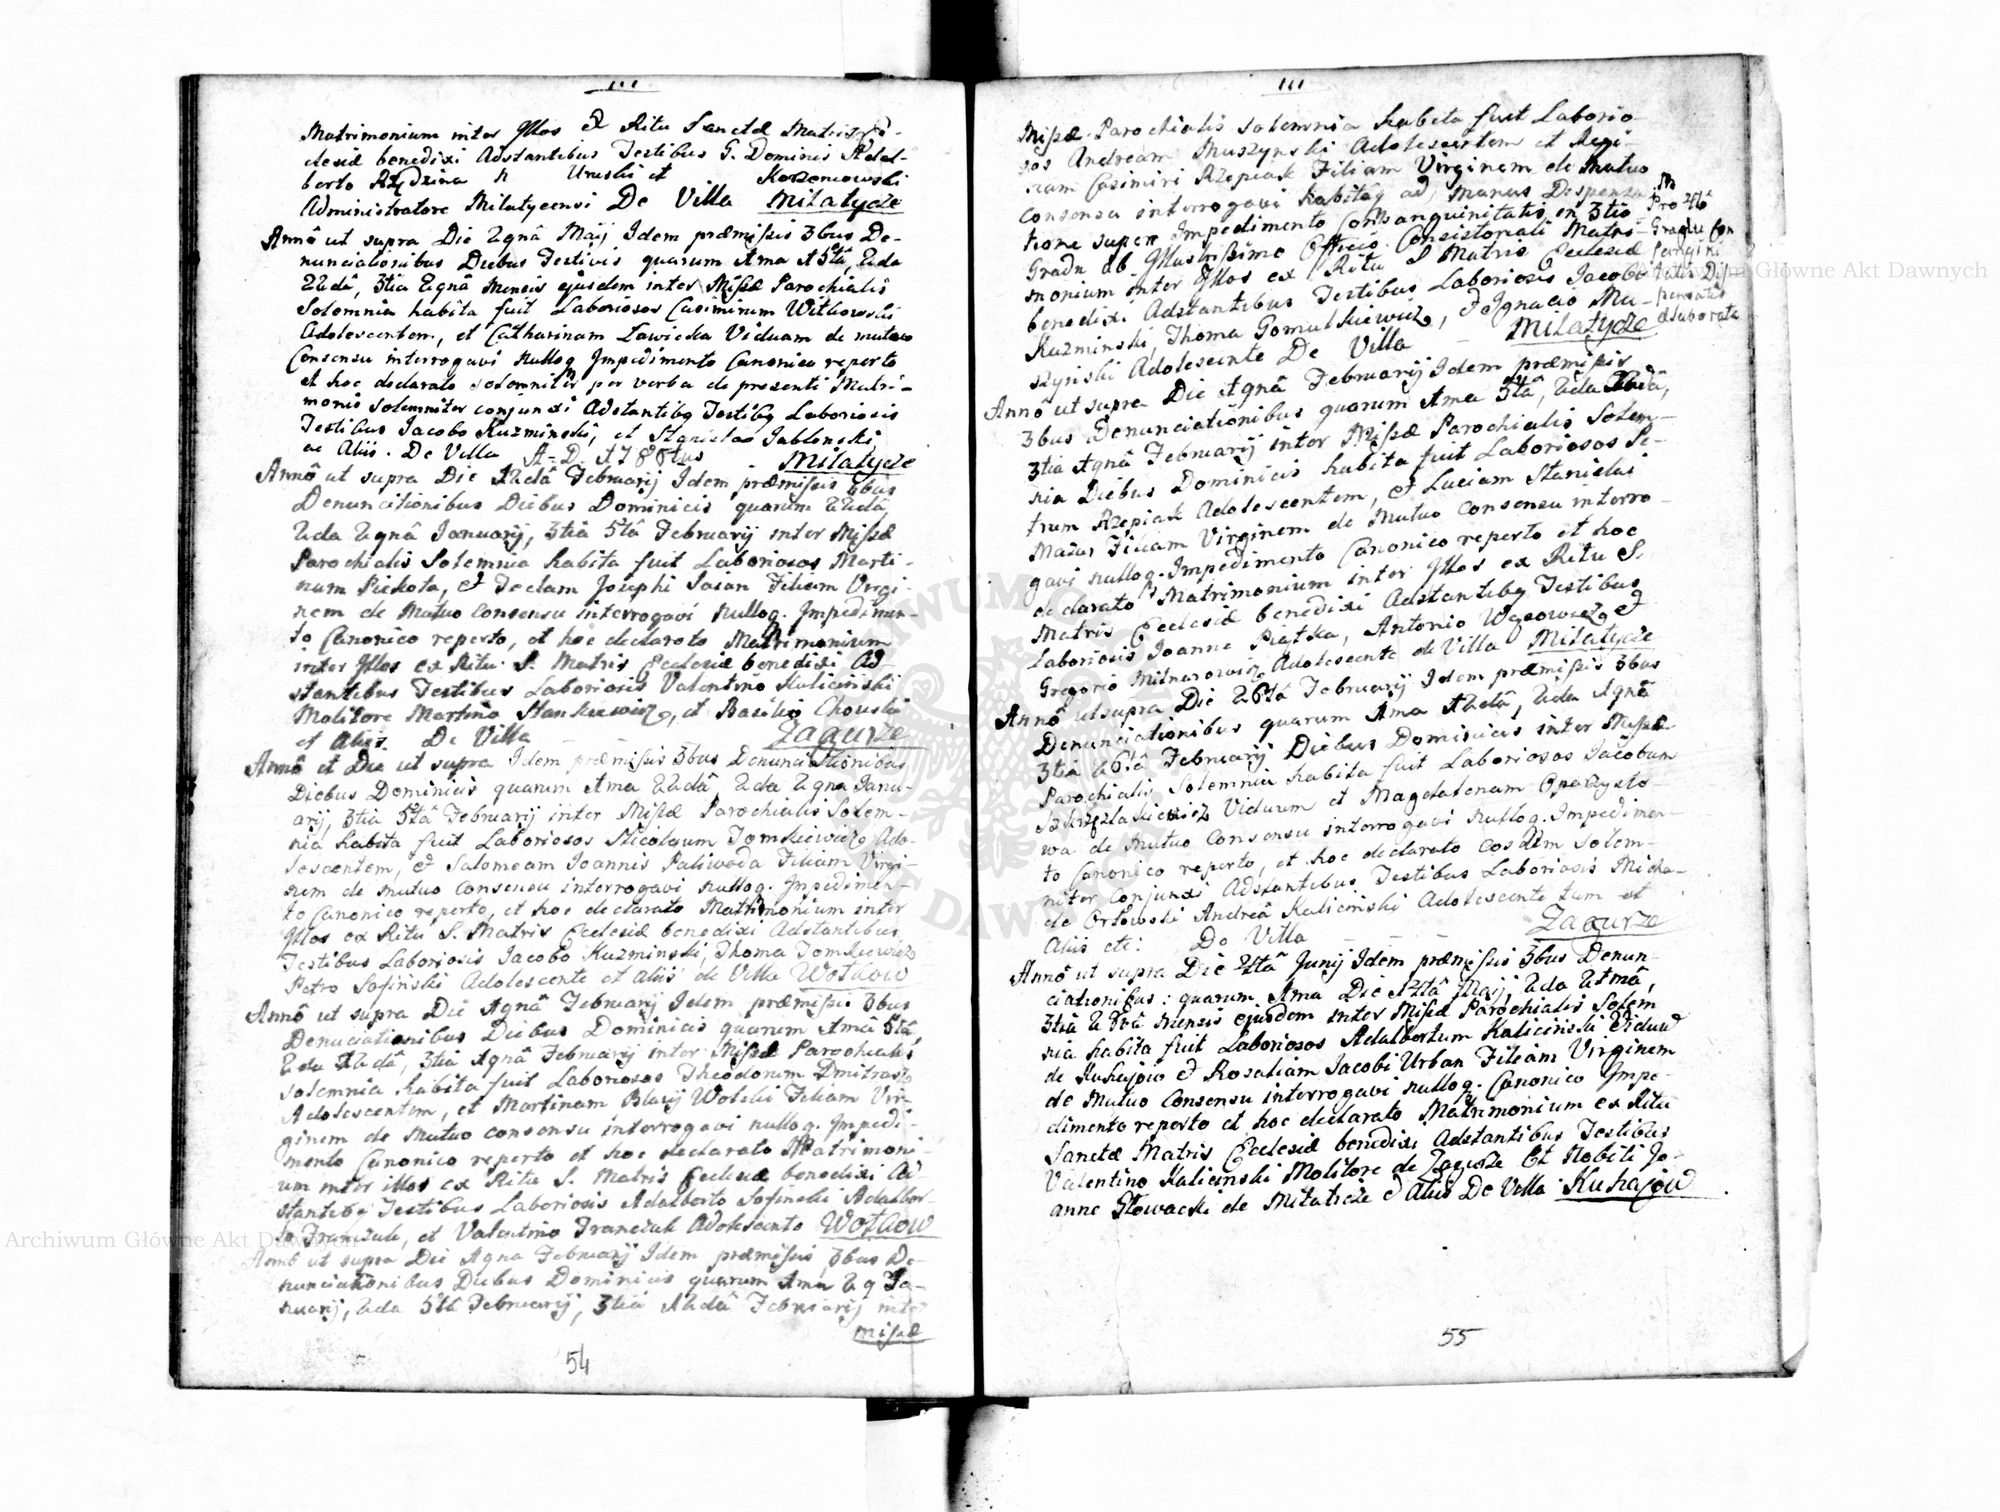 Matrimonium inter Illos Ex Ritu Sanctæ Matris
clesiæ benedixi Adstantibus Testibus G. Dominis Adal-
berto Kozeniowski
Administratore Milatycensi De Villa Milatycze
Annô ut supra Die 29nâ Maij Idem præmissis 3bus De-
nunciationibus Diebus Festivis quarum 1ma 15tâ, 2da
22dâ, 3tia 29nâ Mensis ejusdem inter Missæ Parochialis
Solemnia habita fuit Laboriosos Casimirum Witkowski
Adolescentem, et Catharinam Zawicka Viduam de mutuo
Consensu interrogavi nulloq Impedimento Canonico reperto
et hoc declarato solemniter per verba de presenti Matri-
monis solemniter conjunxi Adstantibq Testibq Laboriosis
Testibus Jacobo Kuzminski, et Stanislao Jablonski,
ac Aliis. De Villa A. D. 1786tus Milatycze
Annô ut supra Die 12dâ Februarij Idem præmissis 3bus
Denuncitionibus Diebus Dominicis quarum 22dâ,
2da 29nâ Januarij, 3tiâ 5tâ Februarij inter Missæ
Parochialis Solemnia habita fuit Laboriosos Marti-
num Piekota, et Teclam Josephi Jasan Filiam Virgi-
nem de Mutuo Consensu interrogavi nulloq. Impedimen-
to Canonico reperto, et hoc declarato Matrimonium
inter Illos ex Ritu S. Matris Ecclesiæ benedixi Ad-
stantibus Testibus Laboriosis Valentino Kaliciński
Molitore Martino Stankiewicz, et Basilio
et Aliis. De Villa Zagurze
Annô et Die ut supra Idem præmissis 3bus Denunciationibus
Diebus Dominicis quarum 1ma 22dâ, 2da 29na Janu-
arij, 3tiâ 5tâ Februarij inter Missæ Parochialis Solem-
nia habita fuit Laboriosos Nicolaum Tomkiewicz Ado-
lescentem, et Salomeam Joannis Paliwoda Filiam Virgi-
nem de mutuo Consensu interrogavi nulloq. Impedimen-
to Canonico reperto, et hoc declarato Matrimonium inter
Illos ex Ritu S. Matris Ecclesiæ benedixi Adstantibus
Testibus Laboriosis Jacobo Kuzminski, Thoma Tomkiewicz
Petro Sofiński Adolescente et Aliis de Villa Wołkow
Annô ut supra Die 19nâ Februarij Idem præmissis 3bus
Denuciationibus Diebus Dominicis quarum 1ma 5tâ
2da 12dâ, 3tiâ 19nâ Februarij inter Missæ Parochialis
solemnia habita fuit Laboriosos Theodorum
Adolescentem, et Martinam Blasij Wolski Filiam Vir-
ginem de Mutuo consensu interrogavi nulloq. Impedi-
mento Canonico reperto et hoc declarato Matrimoni-
um inter illos ex Ritu S. Matris Ecclesiæ benedixi Ad-
stantibq Testibus Laboriosis Adalberto Sofinski Adalber-
to Franczuk, et Valentino Franczuk Adolescente Wołkow
Annô ut supra Die 19na Februarij Idem præmissis 3bus De-
nunciationibus Diebus Dominicis quarum 1ma 29 Ja-
nuarij, 2da 5tâ Februarij, 3tiâ 12dâ Februarij inter
Missæ
54
Missæ Parochialis solemnia habita fuit Laborio-
sos Andream Muszynski Adolescentem et Regi-
nam Casimiri Rzepiak Filiam Virginem de Mutuo
consensu interrogavi habitâq ad Manus Despensa-
tione super Impedimento Consanguinitatis in 3tio
Gradu ab Illustrissimo Officio Consistoriali Matri-
monium inter Illos ex Ritu S Matris Ecclesiæ
benedixi Adstantibus Testibus Laboriosis Jacobo
Kuzminski, Thoma Gomulkiewicz, et Ignacio Mu-
szyński Adolescente De Villa Milatycze
Pro 4to
Gradu Con
sangvini
tatis Dis
pensatio
elaborata
Annô ut supra Die 19nâ Februarij Idem præmissis
3bus Denunciationibus quarum 1ma 5tâ, 2da 12dâ,
3tiâ 19nâ Februarij inter Missæ Parochialis Solem-
nia Diebus Dominicis habita fuit Laboriosos Pe-
trum Rzepiak Adolescentem, et Luciam Stanislai
Mazur Filiam Virginem de Mutuo Consensu interro-
gavi nulloq. Impedimento Canonico reperto et hoc
declarato Matrimonium inter Illos ex Ritu S.
Matris Ecclesiæ benedixi Adstantibq Testibus
Laboriosis Joanne Piątka, Antonio Wąsowicz et
Gregorio Adolescente de Villa Milatycze
Annô ut supra Die 26tâ Februarij Idem præmissis 3bus
Denunciationibus quarum 1ma 12dâ, 2da 19nâ
3tiâ 26tâ Februarij Diebus Dominicis inter Missæ
Parochialis Solemnia habita fuit Laboriosos Jacobum
Viduum et Magdalenam
wa de Mutuo Consensu interrogavi nulloq. Impedimen-
to Canonico reperto, et hoc declarato Eosdem Solem-
niter Conjunxi Adstantibus Testibus Laboriosis Micha-
ele Orłowski Andreâ Kaliciński Adolescente tum et
Aliis etc: De Villa Zagurze
Annô ut supra Die 4tâ Junij Idem præmissis 3bus Denun-
ciationibus: quarum 1ma Die 14tâ Maij, 2da 21mâ,
3tiâ 28vâ Mensis ejusdem inter Missæ Parochialis Solem
nia habita fuit Laboriosos Adalbertum Kaliciński Viduu
de Kuhajow et Rosaliam Jacobi Urban Filiam Virginem
de Mutuo Consensu interrogavi nulloq. Canonico Impe-
dimento reperto et hoc declarato Matrimonium ex Ritu
Sanctæ Matris Ecclesiæ benedixi Adstantibus Testibus
Valentino Kalicinski Molitore de Zagurze Et Nobili Jo-
anne Głowacki de Milaticze et Aliis De Villa Kuhajow
55
Archiwum Główne Akt Dawnych
Archiwum Główne Akt Dawnych